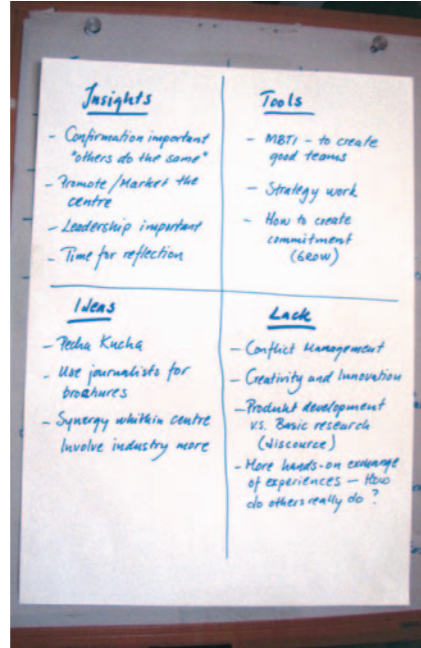 Insights
- Confirmation important
"others do the same"
- Promote/Market the
centre
- Leadership important
- Time for reflection
Tools
- MBTI - to create
good teams
- Strategy work
- How to create
commitment
(GROW)
Ideas
- Pecha Kucha
- Use journalists for
brochures
- Synergy whithin centre
Involve industry more
Lack
- Conflict Management
- Creativity and Innovation
- Product development
v.s. Basic research
(discource)
- More hands-on exchange
of experiences - How
do others really do ?